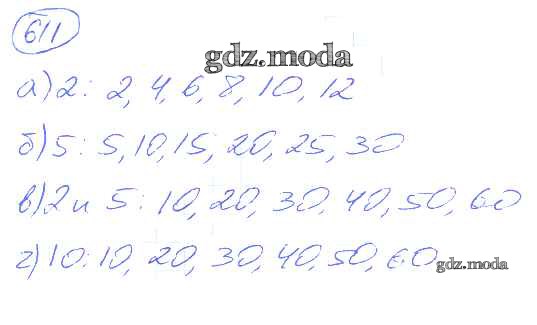 611
gdz.moda
а) 2: 2, 4, 6, 8, 10, 12
б) 5: 5, 10, 15, 20, 25, 30
в) 2 и 5: 10, 20, 30, 40, 50, 60
г) 10: 10, 20, 30, 40, 50, 60
gdz.moda